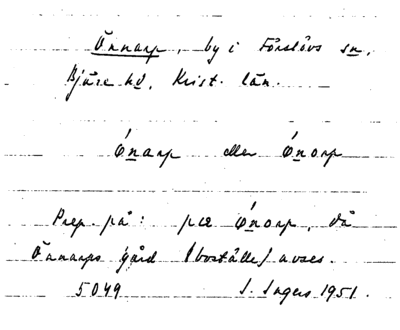 Önnarp, by i Förslövs sn,
Bjäre hd, Krist. län.
Ónarp eller Ónorp
Prep. på: pæ Ónorp, då
Önnarps gård (boställe) avses.
5049 I. Ingers 1951.